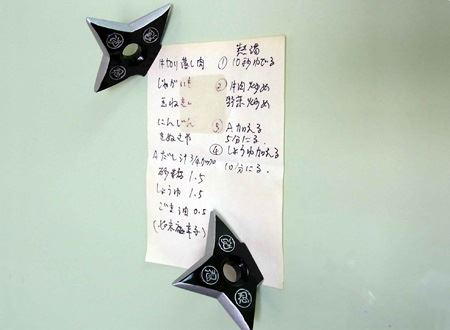 牛切り落し肉
じゃがいも
玉ねぎ
にんじん
きぬさや
A だし汁 3/4カップ
砂糖 1.5
しょうゆ 1.5
ごま油 0.5
熱湯
① 10秒ゆでる
② 牛肉炒め
野菜炒め
③ A加える
5分にる
④ しょうゆ加える
10分にる。